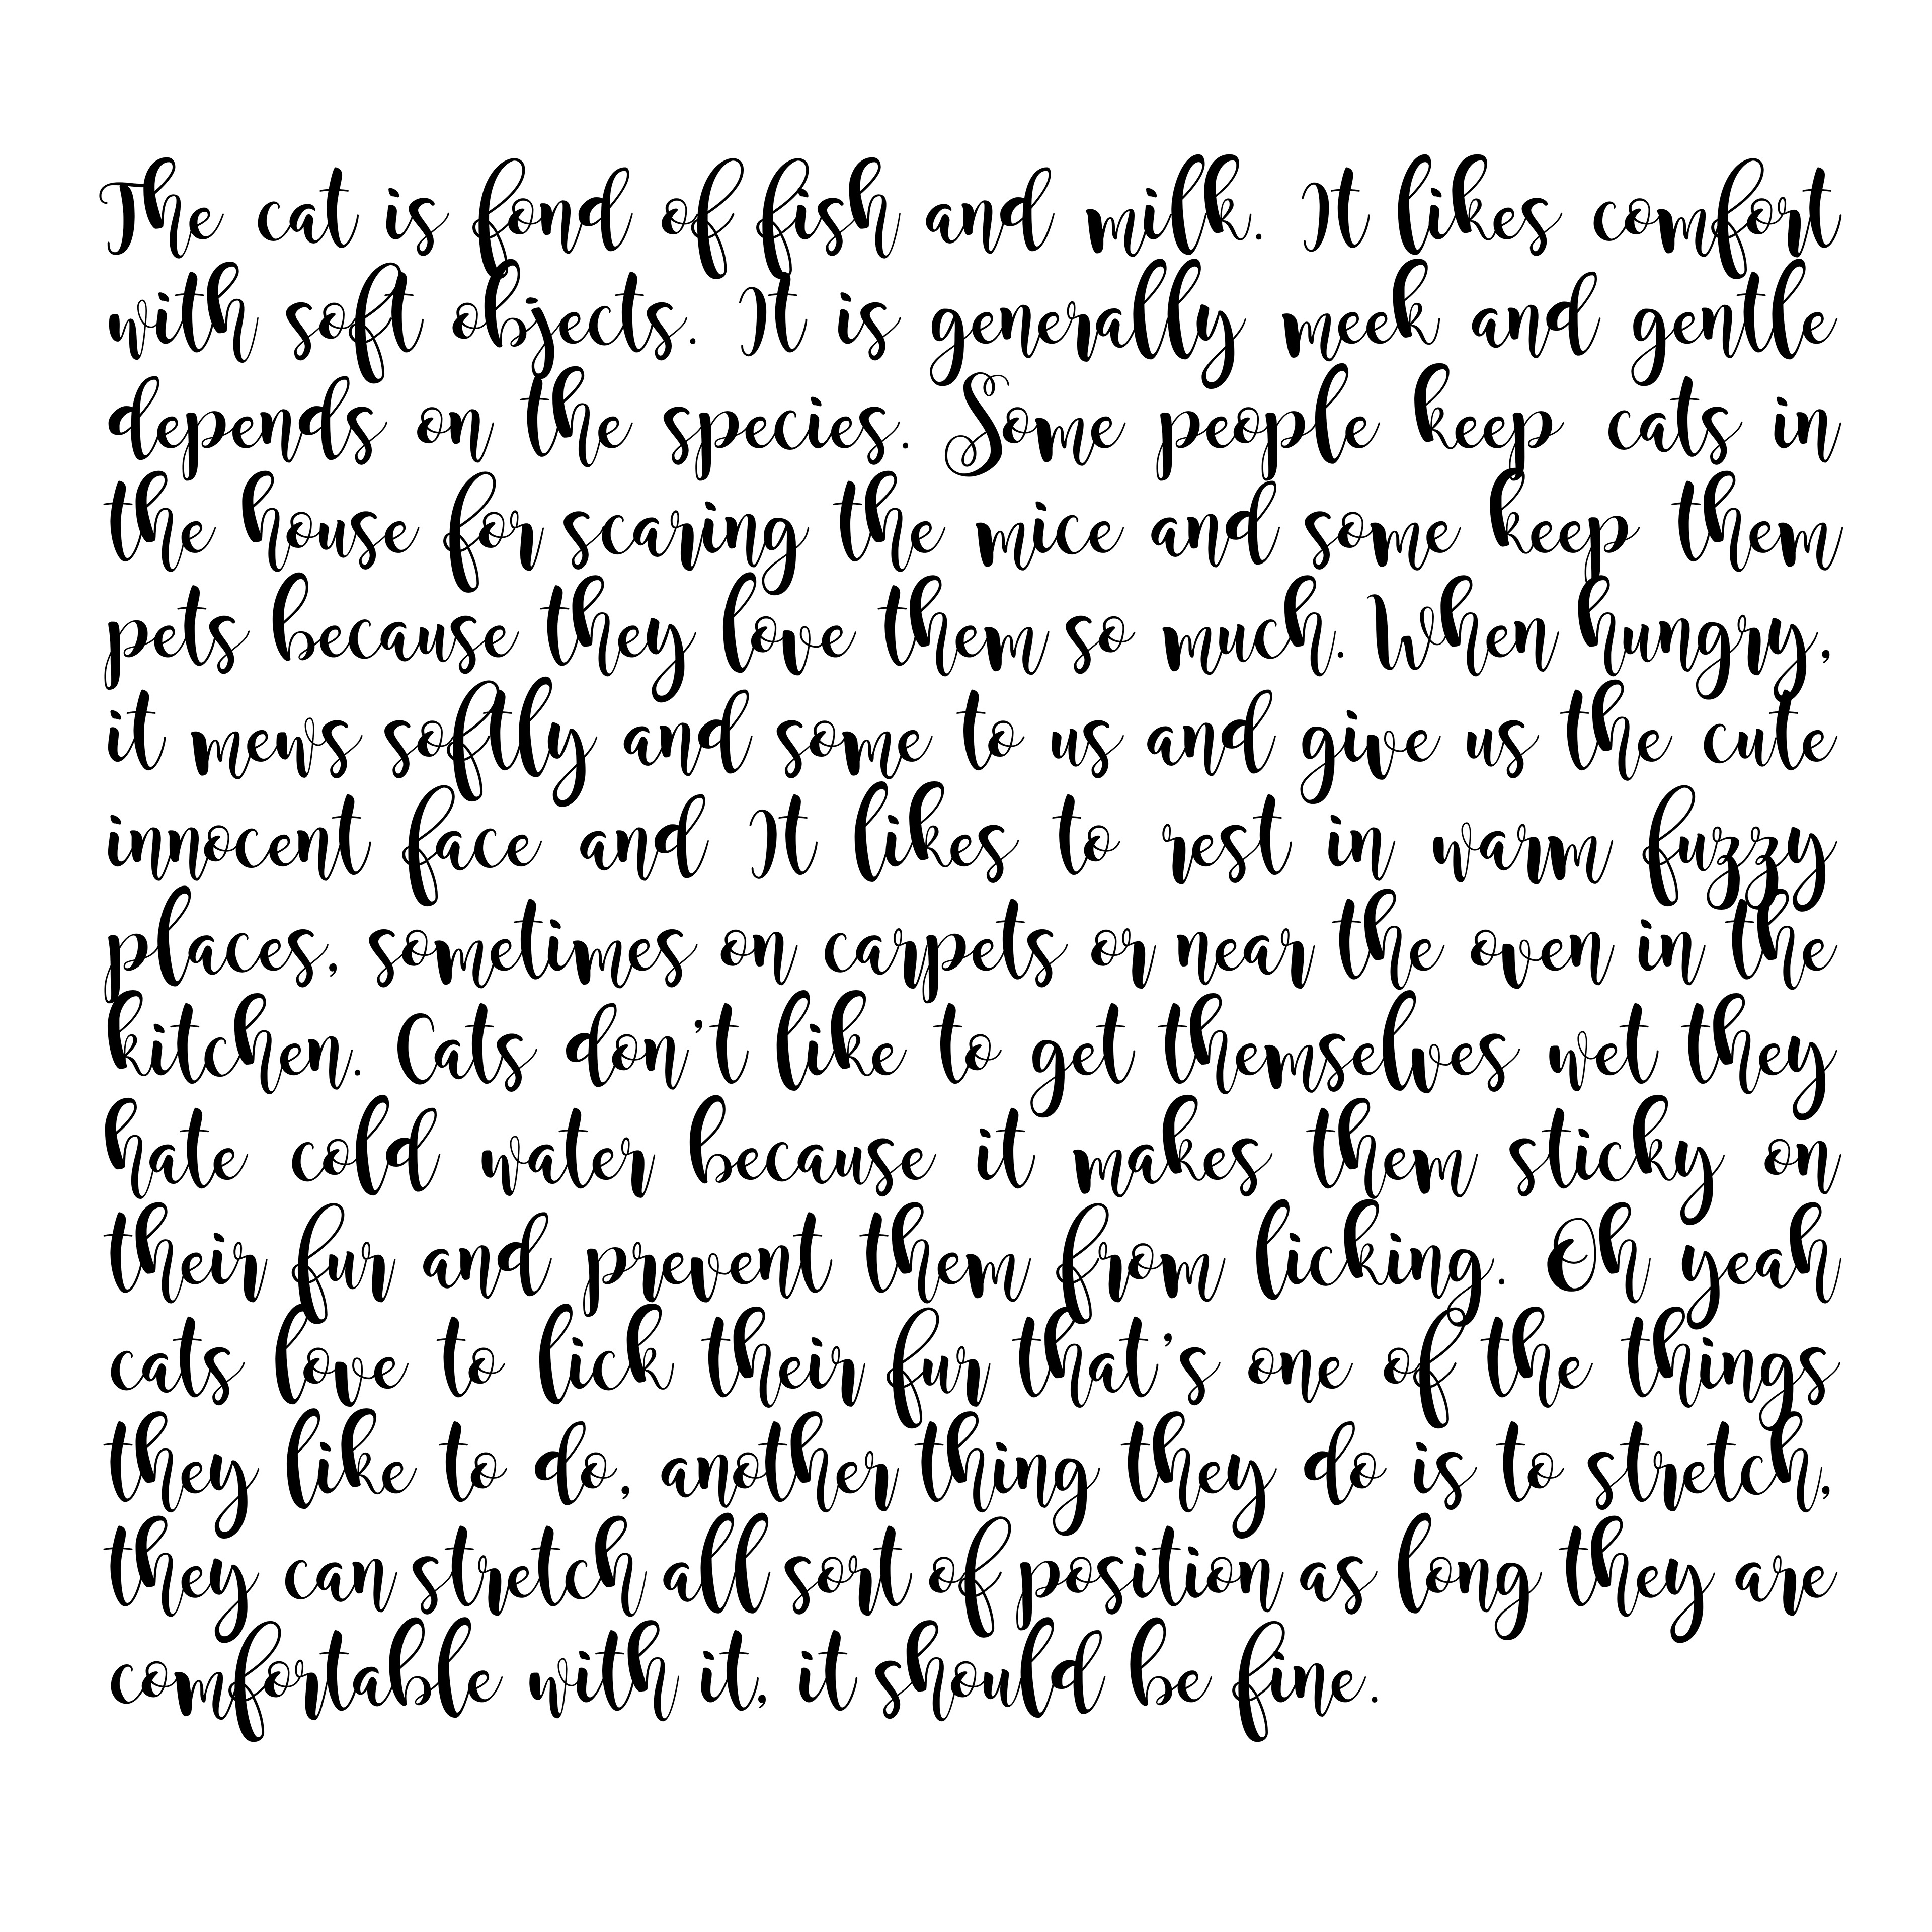 The cat is fond of fish and milk. It likes comfort
with soft objects. It is generally meek and gentle
depends on the species. Some people keep cats in
the house for scaring the mice and some keep them
pets because they love them so much. When hungry,
it mews softly and some to us and give us the cute
innocent face and It likes to rest in warm fuzzy
places, sometimes on carpets or near the oven in the
kitchen. Cats don't like to get themselves wet they
hate cold water because it makes them sticky on
their fur and prevent them from licking. Oh yeah
cats love to lick their fur that's one of the things
they like to do, another thing they do is to stretch,
they can stretch all sort of position as long they are
comfortable with it, it should be fine.